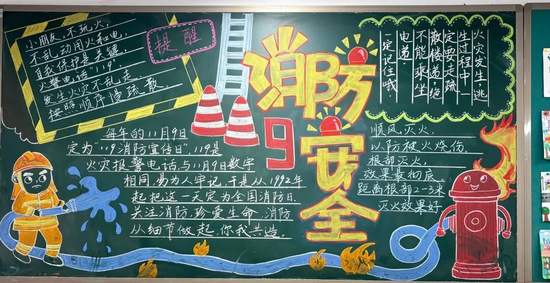 提醒
小朋友,不玩火,
不乱动闭火和电,
自我保护是关键,
火警电话"119"
发生火灾不乱走
按照顺序速疏散
消防
安全
9
火灾发生逃
生过程中一
定要走疏
散楼道绝
不能乘坐
电递
一定记住哦!
每年的11月9日
定为"119消防宣传日",119是
火灾报警电话,与11月9数字
相同,易为人牢记,于是从1992年
起把这一天定为全国消防日
关注消防,珍爱生命,消防
从细节做起,你我共造。
顺风灭火,
以防被火烧伤,
根部灭火,
效果最彻底
距离根部2-3米
灭火效果好